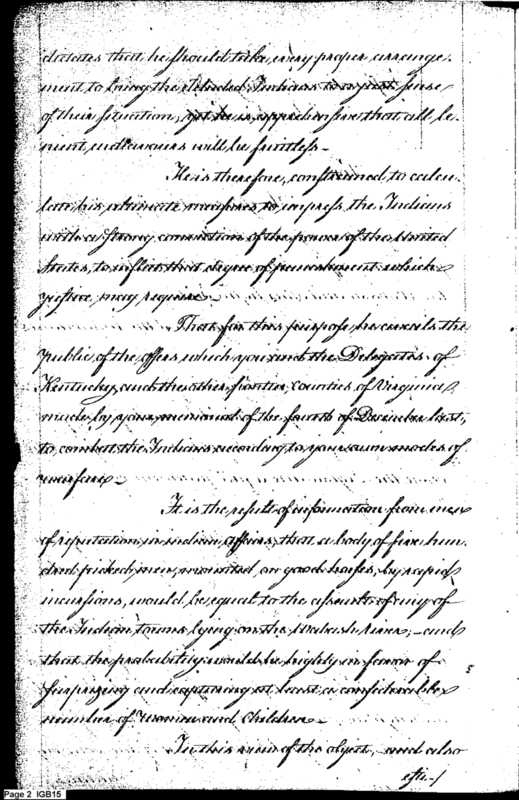 dictates that he should take, every proper arrange-
ment to bring the deluded Indians to a just sense
of their situation, yet he is apprehensive that all le-
nient endeavours will be fruitless—
He is therefore, constrained, to calcu-
late his ultimate measures to impress the Indians
with a strong conviction of the power of the United
States, to inflict that degree of punishment which
justice may require—
That for this purpose, he avails the
public of the offers, which you and the Delegates of
Kentucky, and the other frontier, Counties of Virginia,
made by your, memorial of the fourth of December last,
to combat the Indians according to your own modes of
warfare—
It is the result of information from men
of reputation in indian affairs, that a body of five hun-
dred picked men, mounted on good horses, by rapid
incursions, would be equal to the assault of any of
the Indian towns lying on the Wabash river,—and
that the probability would be highly in favor of
surprizing and capturing at least a considerable
number of women and Children—
In this view of the object, and also
Page 2 IGB15